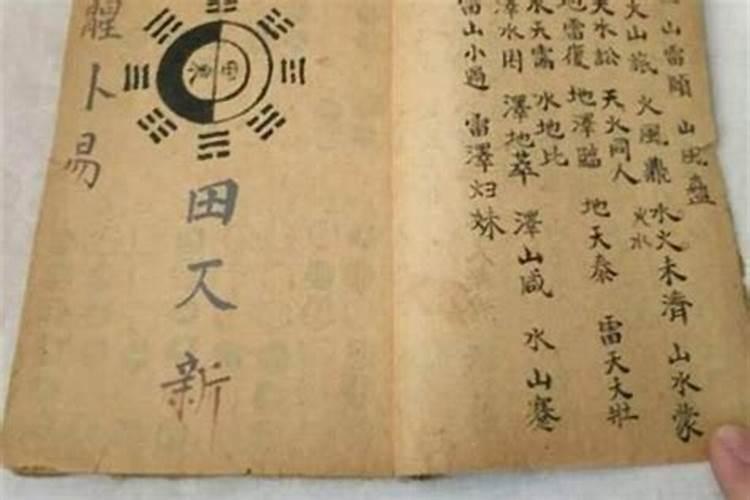 山雷頤
山風蠱
火山旅
火風鼎
水火未濟
火水
山水蒙
天水訟
天火同人
地雷復
地澤臨
地天泰
雷天大壯
水天需
水地比
澤水困
澤地萃
澤山咸
水山蹇
雷山小過
雷澤妹
田新
卜易